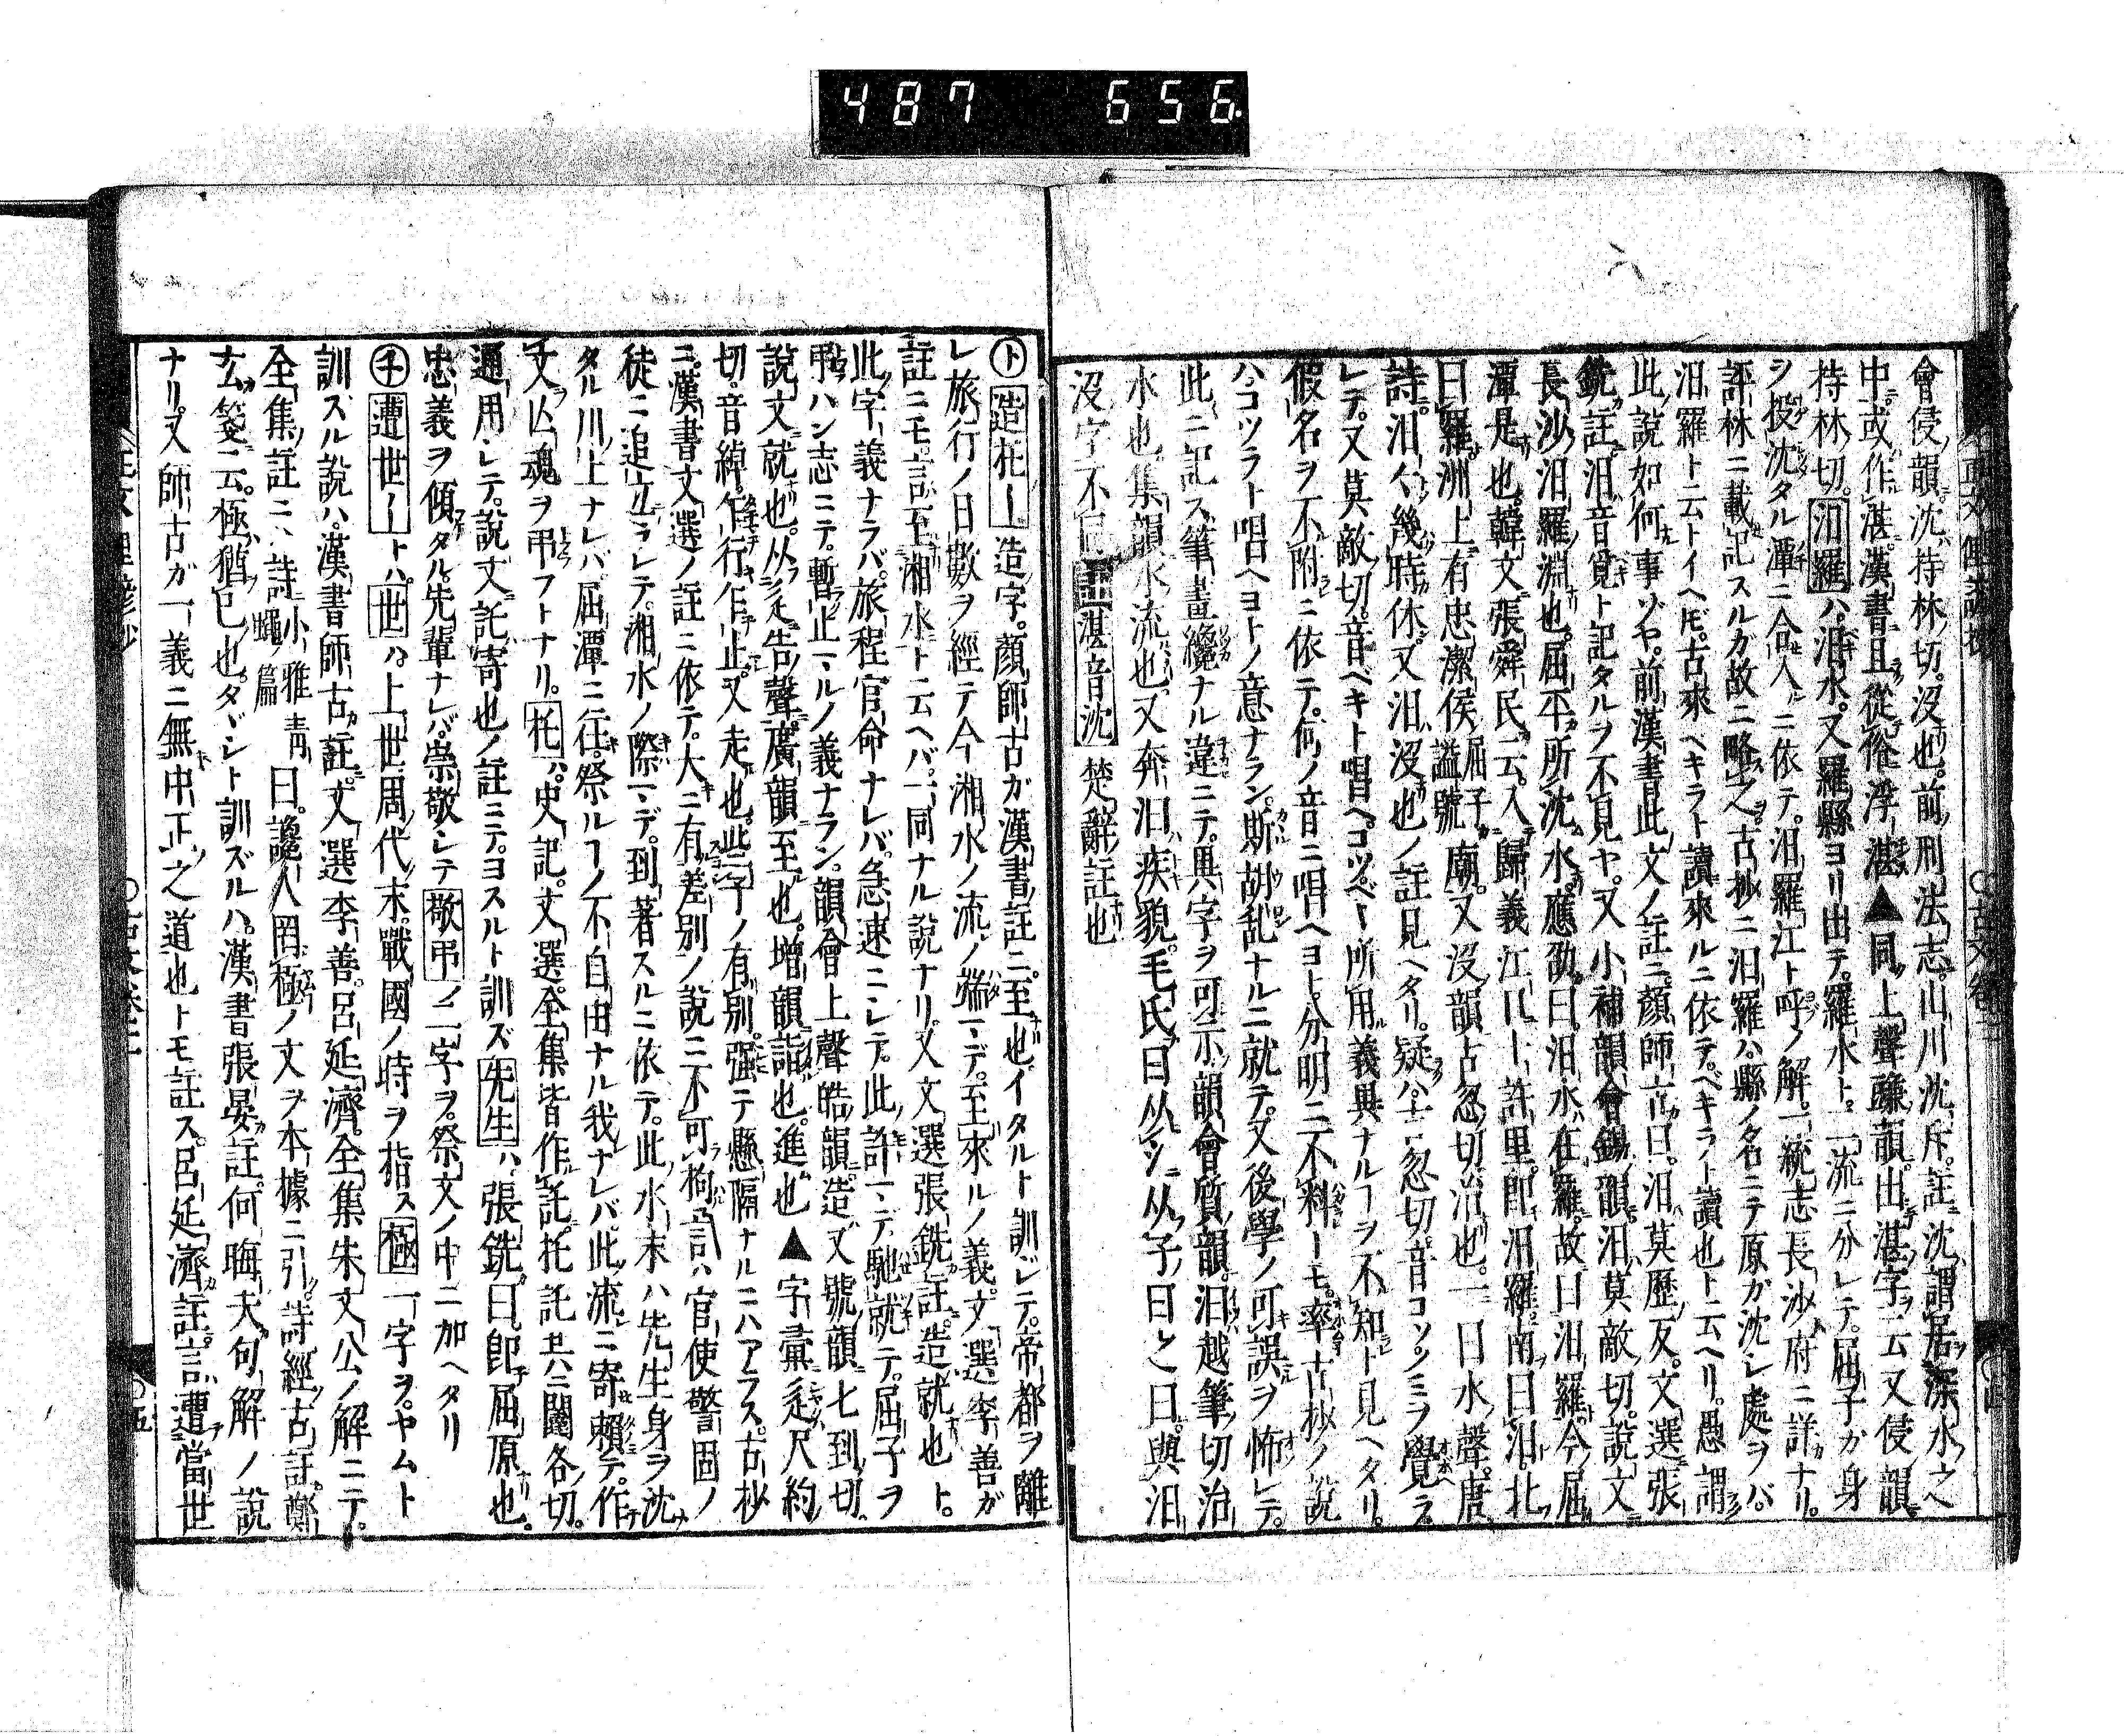 487 656
會侵韻沈持林切沒也前刑法志山川沈斥註沈謂居深水之
中或作湛漢書且從俗浮湛▲同上聲豏韻出湛字云又侵韻
持林切汨羅ハ汨水又羅縣ヨリ出テ羅水ト一流ニ分レテ屈子ガ身
ヲ投沈タル潭ニ合入ニ依テ汨羅江ト呼ノ解一統志長沙府ニ詳ナリ
評林ニ載記スルガ故ニ略之古抄ニ汨羅ハ縣ノ名ニテ原ガ沈シ處ヲバ
汨羅ト云トイヘドモ古來ヘキラト讀來ルニ依テベキラト讀也ト云ヘリ愚謂
此說如何事ゾヤ前漢書此文ノ註ニ顏師古曰汨莫歷反文選張
銑註汨音覓ト記タルヲ不見ヤ又小補韻會錫韻汨莫敵切說文
長沙汨羅淵也屈平所沈水應劭曰汨水在羅故曰汨羅今屈
潭是也韓文張舜民云入歸義江八十許里即汨羅南曰汨北
曰羅洲上有忠潔侯屈子謚號廟又沒韻古忽切治也一曰水聲唐
詩汨汨幾時休又汨沒也ノ註見ヘタリ疑ハ古忽切音コツノミヲ覺ヘ
レテ又莫敵切音ベキト唱ヘコツベキ所用義異ナルコヲ不知ト見ヘタリ
假名ヲ不附ニ依テ何ノ音ニ唱ヘヨト分明ニ不料トモ率古抄ノ說
ハコツラト唱ヘヨトノ意ナラン斯胡乱ナルニ就テ又後學ノ可誤ヲ怖レテ
此ニ記ス筆畫纔ナル違ニテ異字ヲ可示韻會質韻汩越筆切治
水也集韻水流也又奔汩疾貌毛氏曰从シニ从子曰之曰與汨
沒字不同湛音沈楚辭註也
ト造托ー造字顏師古ガ漢書註ニ至也イタルト訓ジテ帝都ヲ離
レ旅行ノ日數ヲ經テ今湘水ノ流ノ端マデ至來ルノ義文選李善ガ
註ニモ言至湘水ト云ヘバ一同ナル說ナリ又文選張銑註造就也ト
此字義ナラバ旅程官命ナレバ急速ニシテ此許マデ馳就テ屈子ヲ
弔ハン志ニテ暫止マルノ義ナラン韻會上聲皓韻造又號韻七到切
說文就也从辵告聲廣韻至也增韻詣也進也▲字彙辵尺約
切音綽乍行乍止又走也此二字ノ有別强テ懸隔ナルニハアラス古抄
ニ漢書文選ノ註ニ依テ大ニ有差別ノ說ニ不可拘言ハ官使警固ノ
徒ニ追立ラレテ湘水ノ際マデ到著スルニ依テ此水末ハ先生身ヲ沈
タル川上ナレバ屈潭ニ往祭ルコノ不自由ナル我ナレバ此流ニ寄賴テ作
文以魂ヲ弔フトナリ托ハ史記文選全集皆作託托託共ニ闥各切
通用シテ說文託寄也ノ註ニテヨスルト訓ズ先生ハ張銑曰即屈原也
忠義ヲ傾タル先輩ナレバ崇敬シテ敬弔ノ二字ヲ祭文ノ中ニ加ヘタリ
チ遭世ートハ世ハ上世周代末戰國ノ時ヲ指ス極一字ヲヤムト
訓ズル說ハ漢書師古註文選李善呂延濟全集朱文公ノ解ニテ
全集註ニハ詩小雅青蠅ノ篇曰讒人罔極ノ文ヲ本據ニ引詩經古註鄭
玄箋云極猶已也タヾシト訓ズルハ漢書張晏註何晦夫句解ノ說
ナリ又師古ガ一義ニ無中正之道也トモ註ス呂延濟註言遭當世